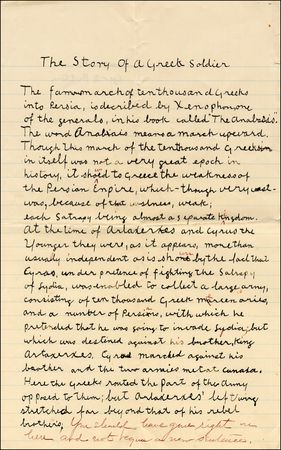 The Story Of A Greek Soldier
The famous march of ten thousand Greeks
into Persia, is decribed by Xenophon one
of the generals, in his book called "The Anabasis".
The word Anabasis means a march upward.
Though this march of the ten thousand Greeks
in itself was not a very great epoch in
history, it showed to Greece the weakness of
the Persian Empire, which - though very vast -
was, because of that vastness, weak;
each Satrapy being almost a separate kingdom.
At the time of Artaxerxes and Cyrus the
Younger they were, as it appears, more than
usualy independent as is shown by the fact that
Cyrus, under pretence of fighting the Satrapy
of Lydia, was enabled to collect a large army,
consisting of ten thousand Greek mercenaries,
and a number of Persians, with which he
pretended that he was going to invade Lydia; but
which was destined against his brother, King
Artaxerxes, Cyrus marched against his
brother and the two armies met at Cunaxa.
Here the Greeks routed the part of the Army
opposed to them; but Artaxerxes' left wing
stretched far beyond that of his rebel
brothers, You should have gone right on
here and not begun a new sentence.